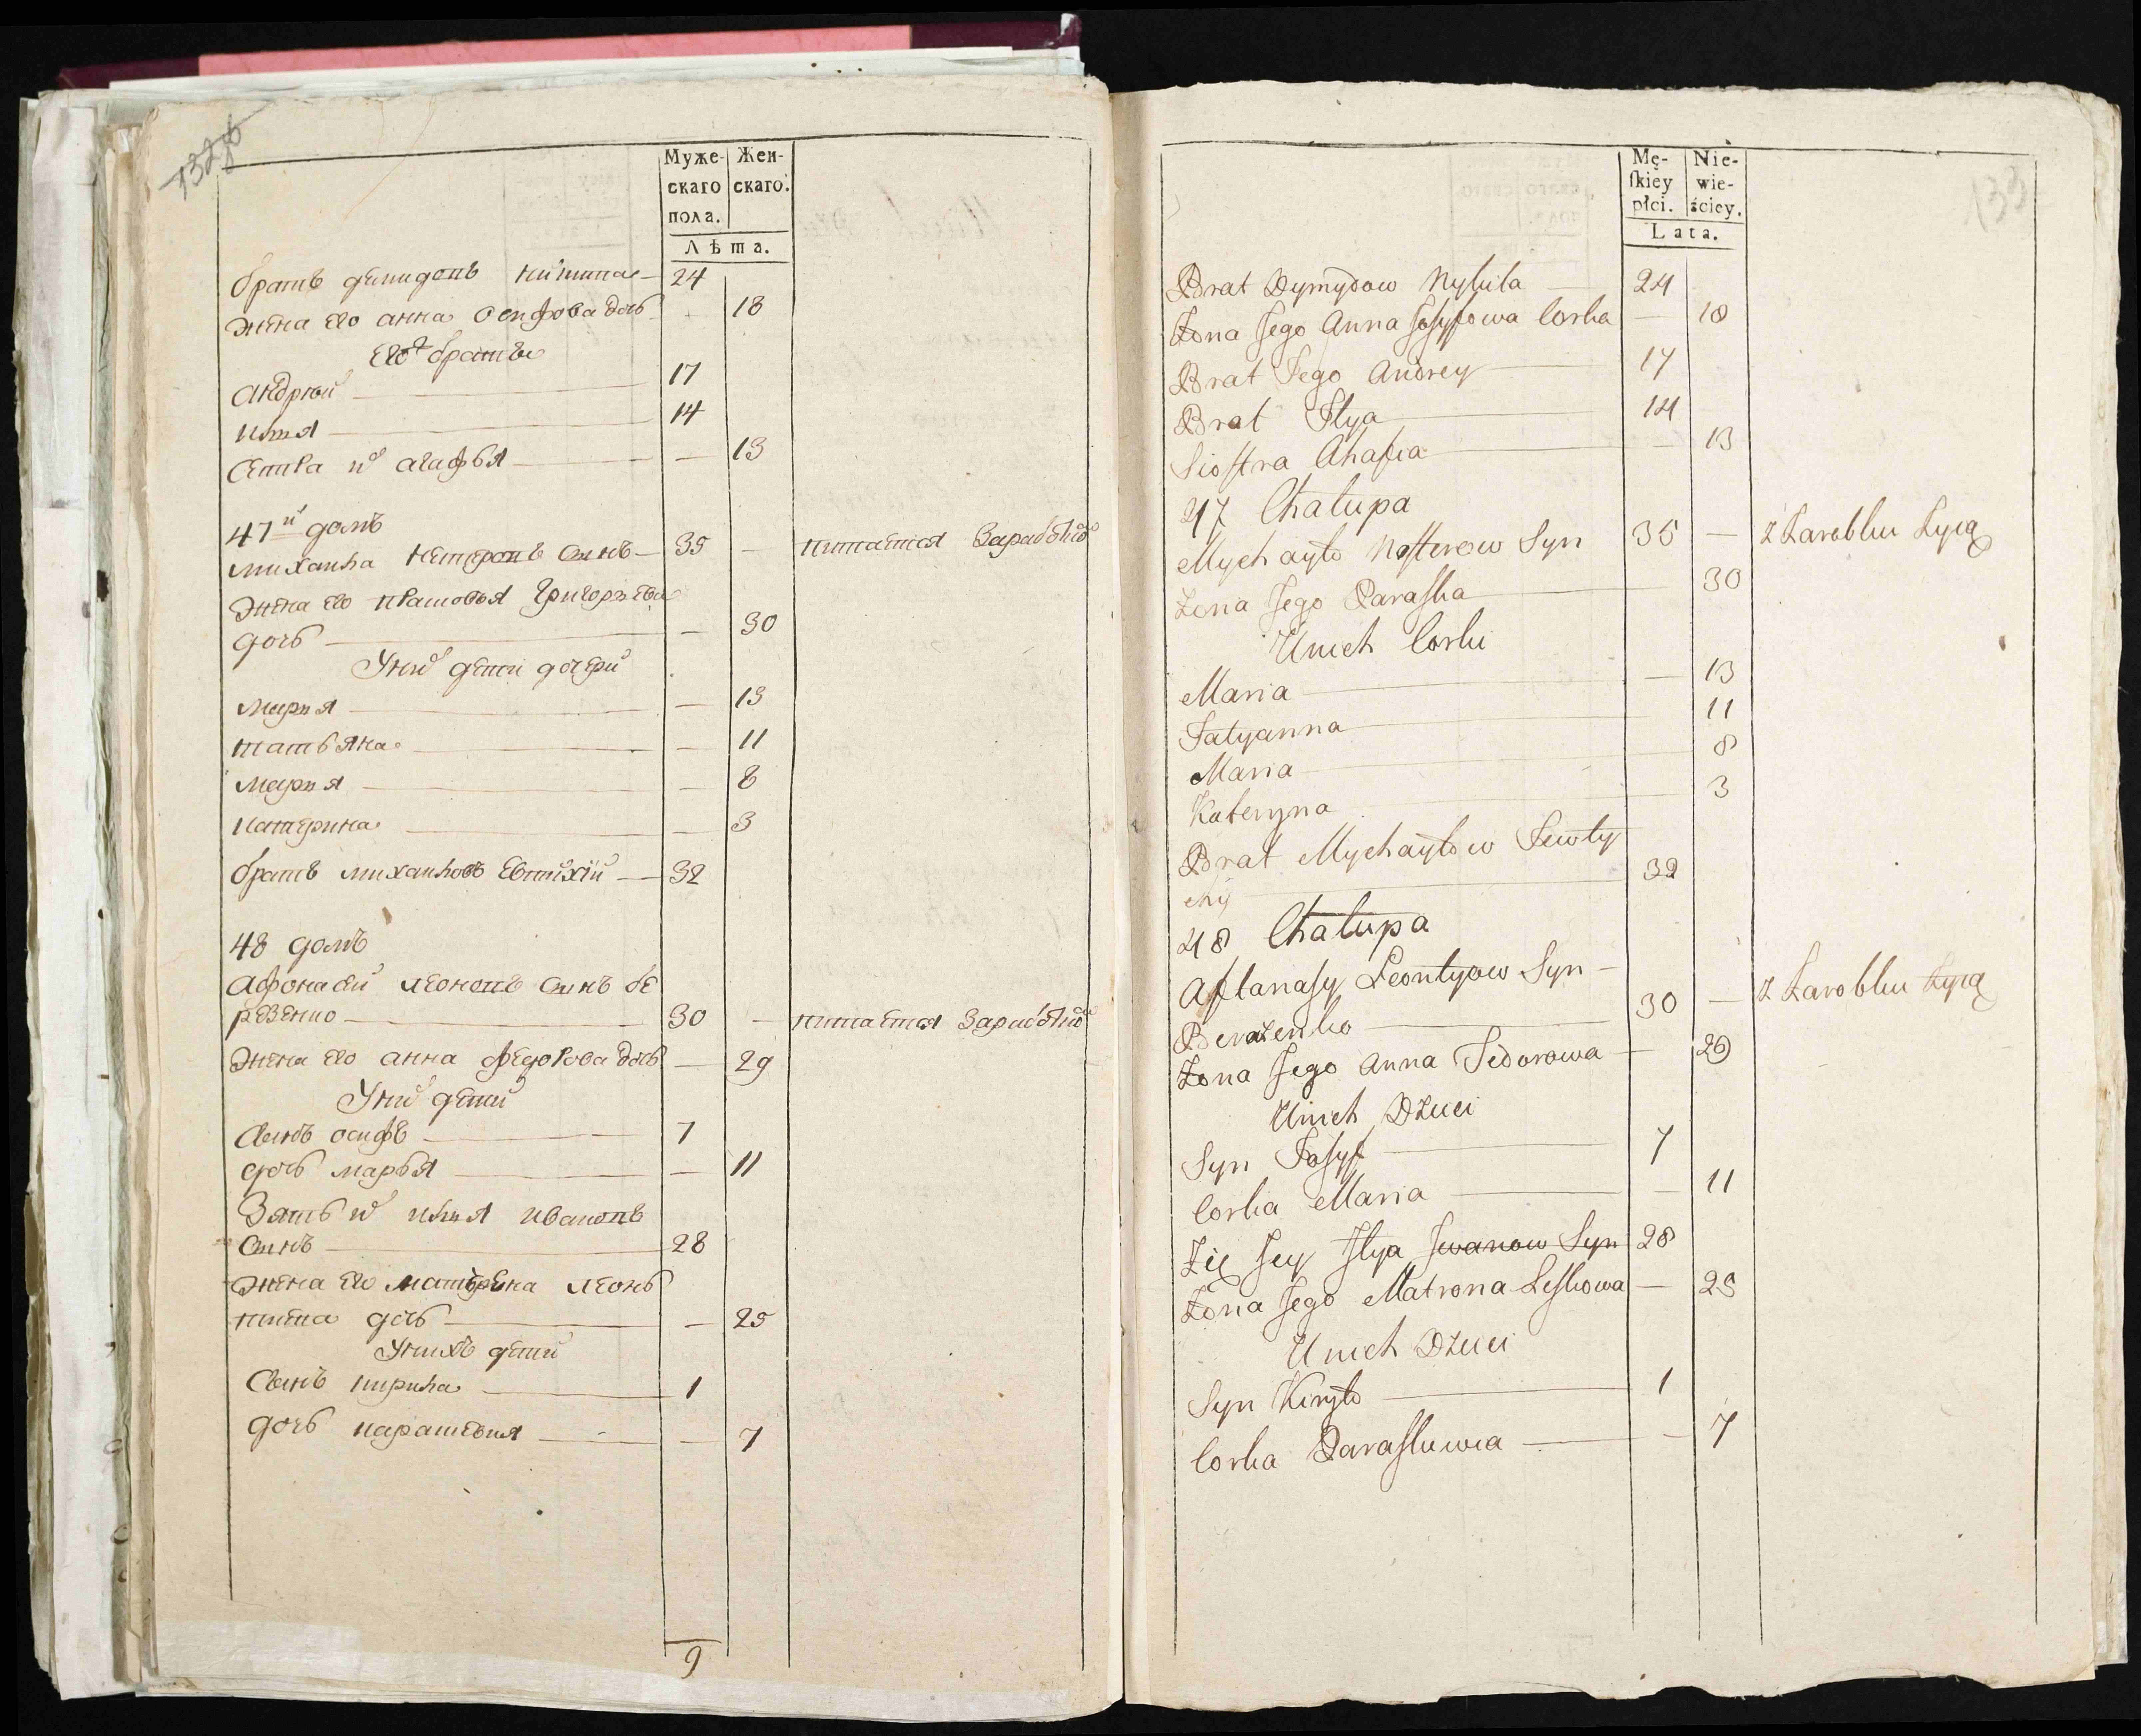 132об
Муже- Жен-
скаго скаго.
пола.
Лѣта.
братъ демидовъ никита 24
жена его анна осифова дочь 18
его братья
андрюй 17
илья 14
сестра их агафья — 13
47й домъ
михаила нестеровъ сынъ 35 — питается заработком
жена его прасковья григорьева
дочь — 30
У них дети дочери
мария — 13
татьяна — 11
мария — 8
катерина — 3
братъ михаиловъ евтихiй 32
48 домъ
афонасий леоновъ сынъ бе
резенко 30 — питается заработком
жена его анна федорова дочь — 29
У них дети
сынъ осифъ 7
дочь марья — 11
Зять их илья ивановъ
сынъ 28
жена его матрена леонь
тиева дочь — 25
У нихъ дети
сынъ кирила 1
дочь парасковия — 7
9
133
Mę- Nie-
skiey wie-
płci. ściey.
Lata.
Brat Dymydow Nykita 24
Żona Jego Anna Josyfowa Corka — 18
Brat Jego Andrey 17
Brat Ilya 14
Siostra Ahafia — 13
47 Chalupa
Mychayło Nesterow Syn 35 — z Zarobku Żyią
Zona Jego Paraska 30
Unich Corki
Maria — 13
Tatyanna 11
Maria 8
Kateryna 3
Brat Mychayłow Jewty
chy 32
48 Chalupa
Aftanasy Leontyow Syn
Berezenko 30 — z Zarobku Żyią
Żona Jego Anna Fedorowa — 29
Unich Dzieci
Syn Josyf 7
Corka Maria — 11
Zię Jey Ilya Jwanow Syn 28
Żona Jego Matrona Leskowa — 25
Unich Dzieci
Syn Kiryło 1
Corka Paraskiewia — 7